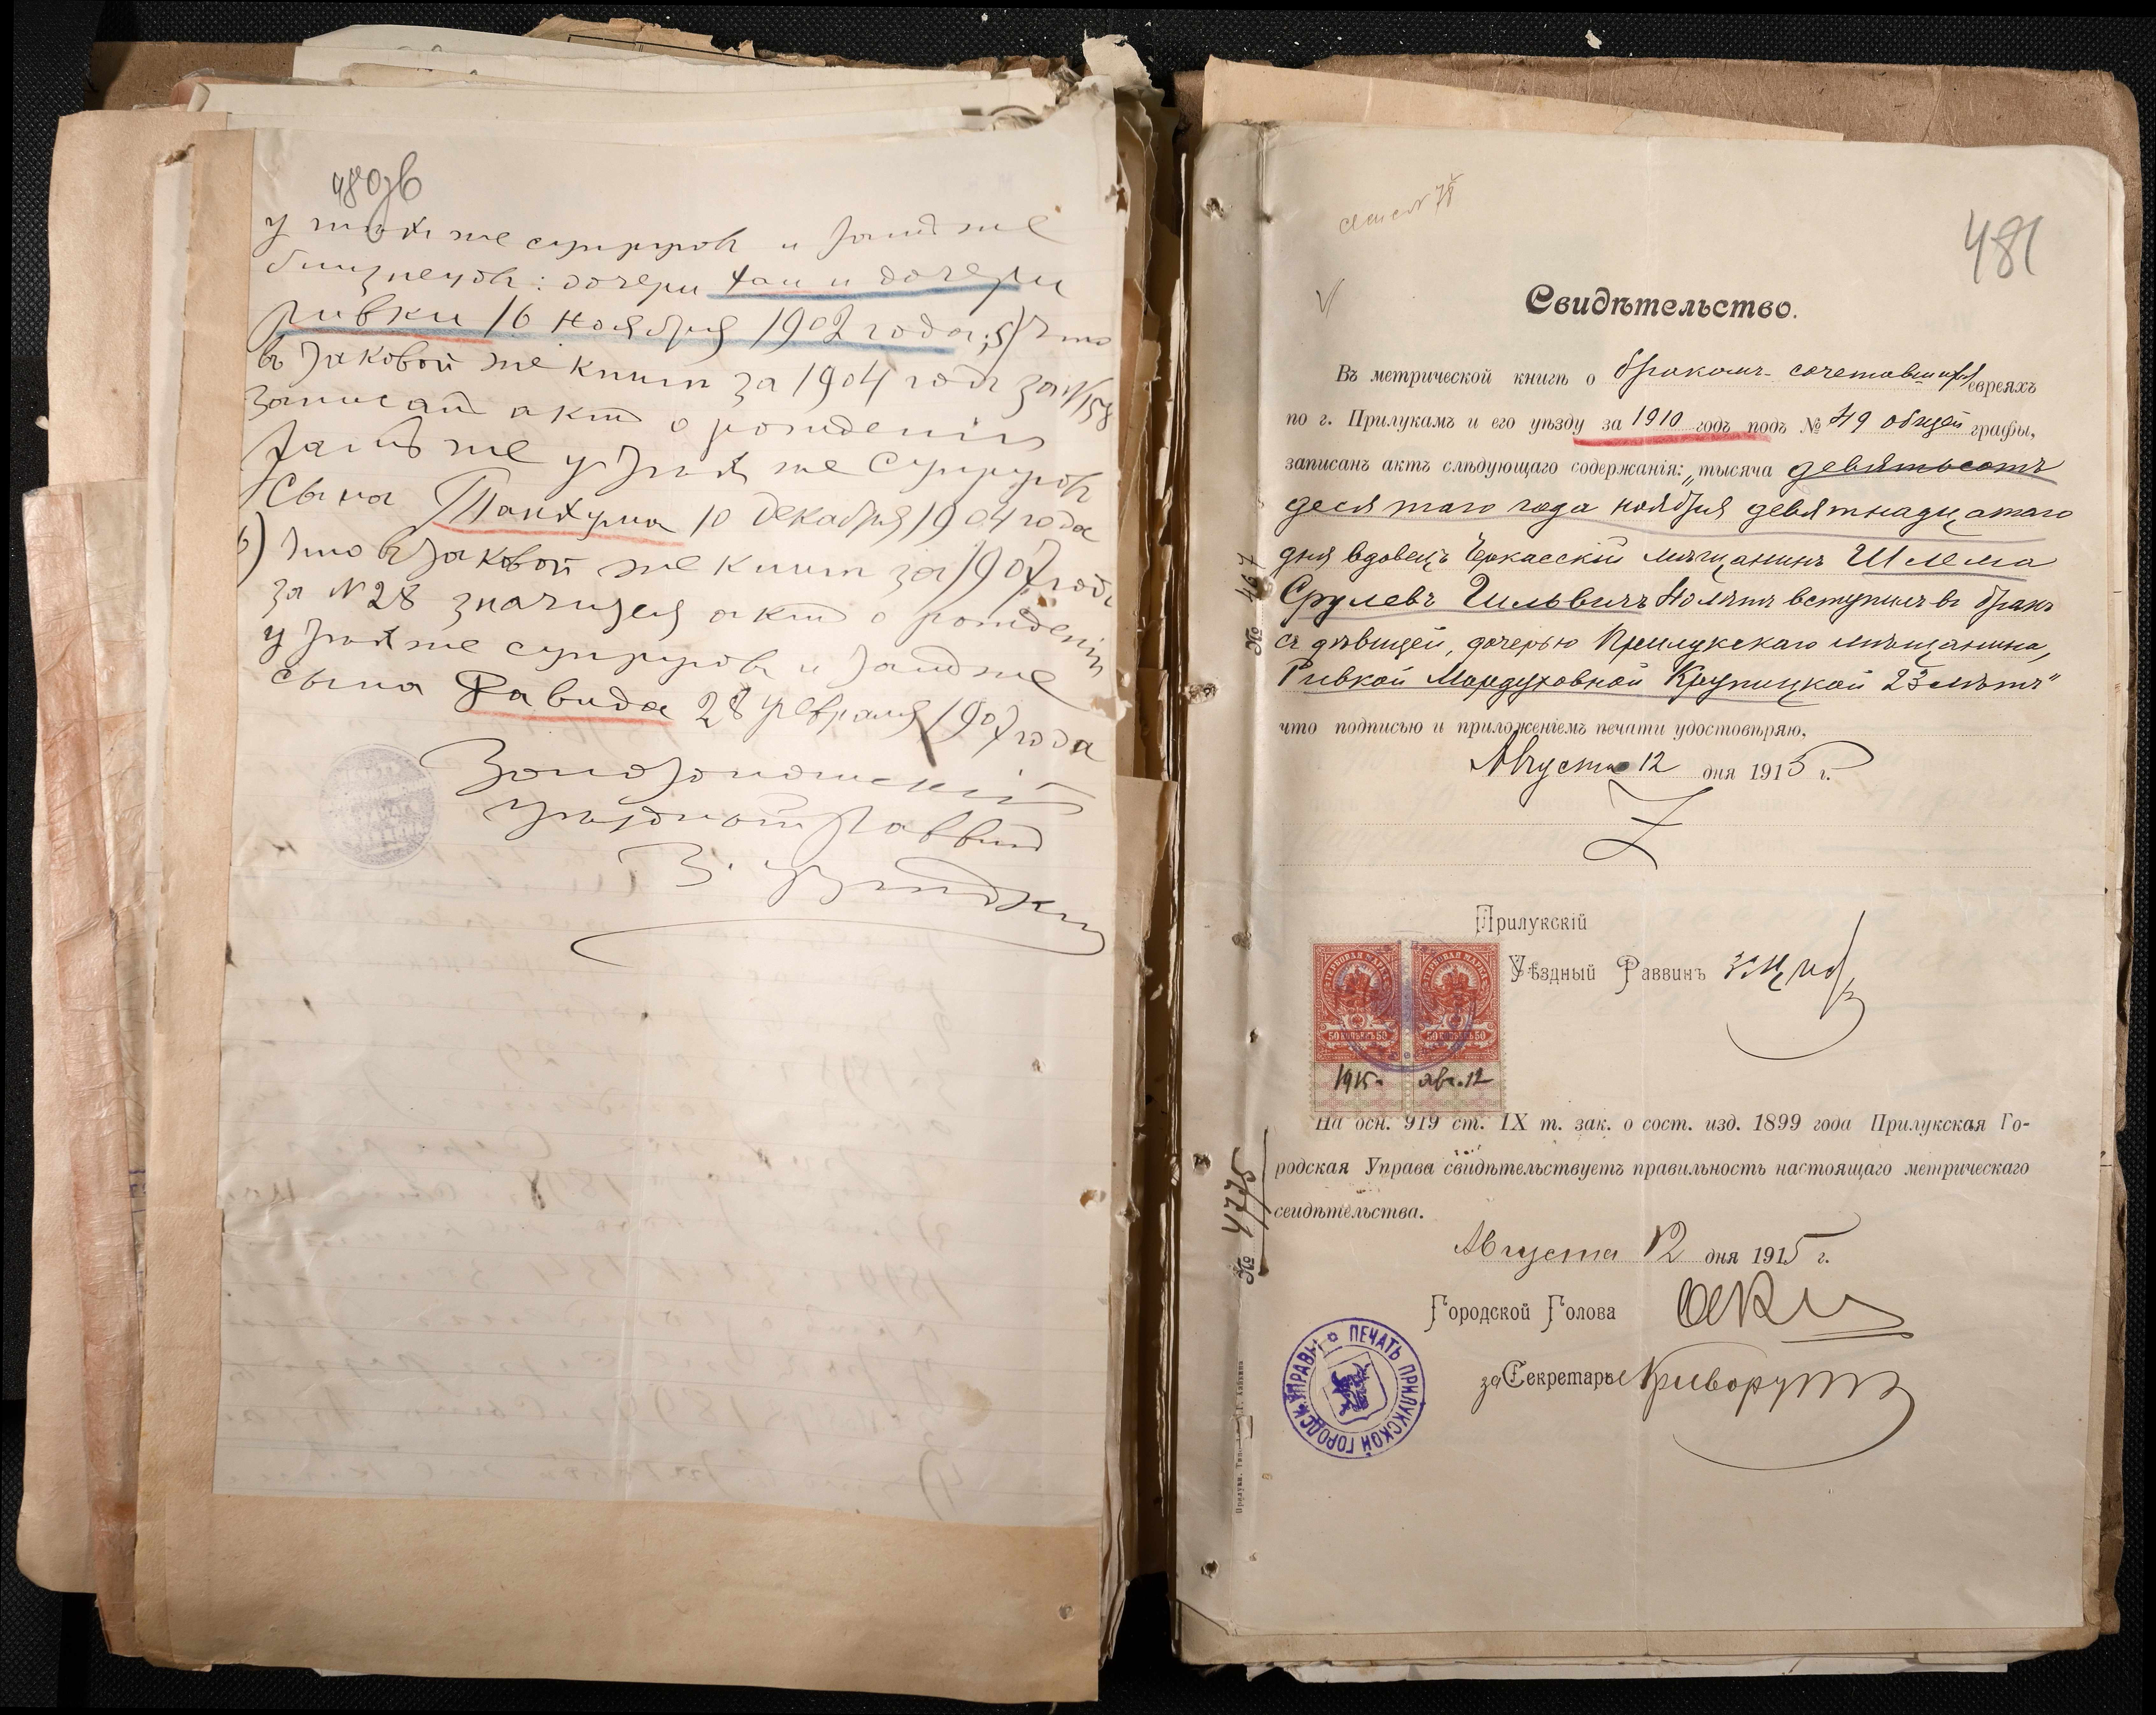 480об
у тѣхъ же супруговъ и тамъ же
близнецовъ: дочери Хаи и дочери
Ривки 16 ноября 1902 года; 5) что
въ таковой же книгѣ за 1904 годъ за № 158
записанъ актъ о рожденіи
тамъ же у тѣхъ же супруговъ
сына Танхума 10 декабря 1904 года
6) что въ таковой же книгѣ за 1907 годъ
за № 28 значится актъ о рожденіи
у тѣхъ же супруговъ и тамъ же
сына Давида 28 февраля 1907 года
Золотоношскій
уѣздный Раввинъ
481
Свидѣтельство.
Въ метрической книгѣ о бракомъ-сочетавшихся евреяхъ
по г. Прилукамъ и его уѣзду за 1910 годъ подъ № 49 общей графы,
записанъ актъ слѣдующаго содержанія: „тысяча девятьсотъ
десятаго года ноября девятнадцатаго
дня вдовецъ Черкасскій мѣщанинъ Шлема
Срулевъ Гильвичъ 40 лѣтъ вступилъ въ бракъ
съ дѣвицей, дочерью Прилукскаго мѣщанина,
Ривкой Мордуховной Крупицкой 23 лѣтъ"
что подписью и приложеніемъ печати удостовѣряю,
Августа 12 дня 1915 г.
№ 467
Прилукскій
Уѣздный Раввинъ
ГЕРБОВАЯ МАРКА ГЕРБОВАЯ МАРКА
50 КОПѢЕКЪ 50 50 КОПѢЕКЪ 50
1915 г. авг. 12
На осн. 919 ст. IX т. зак. о сост. изд. 1899 года Прилукская Го-
родская Управа свидѣтельствуетъ правильность настоящаго метрическаго
свидѣтельства.
№ 4775
Августа 12 дня 1915 г.
Городской Голова
за Секретарь Криворучко
ПЕЧАТЬ ПРИЛУКСКОЙ ГОРОДСК. УПРАВЫ